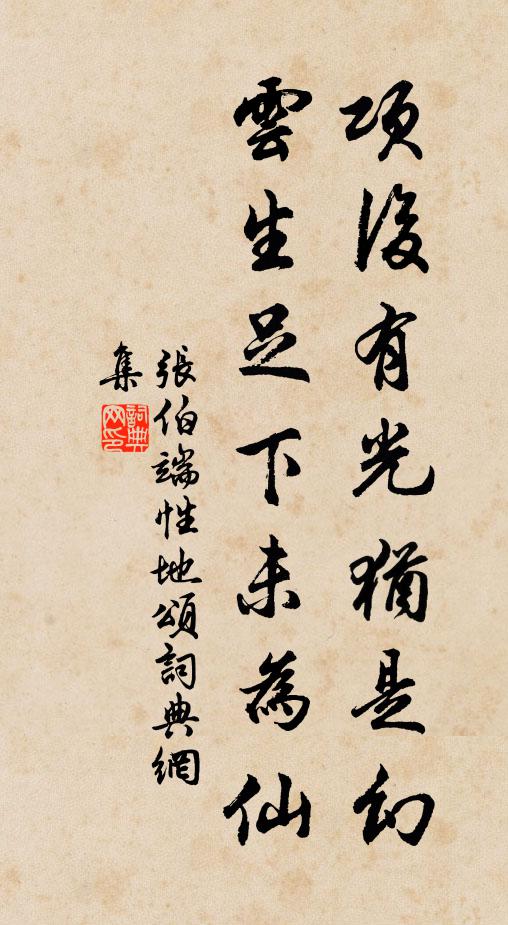 項後有光猶是幻
雲生足下未為仙
張伯端性地頌詞典網
集
詞典
网印